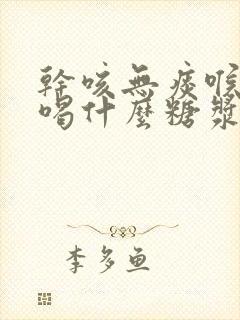 幹咳無痰喉
喝什麼糖漿
李多魚